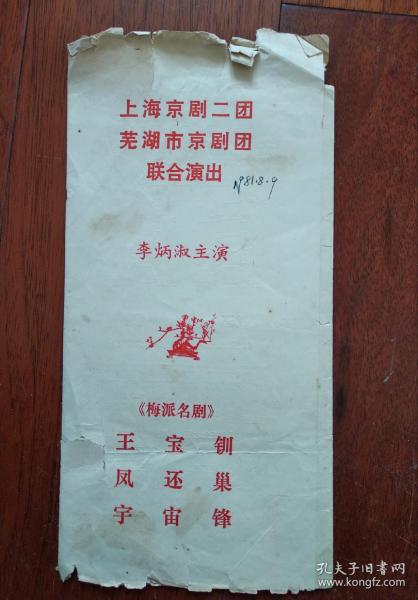 上海京剧二团
芜湖市京剧团
联合演出
1981.8.9
李炳淑主演
《梅派名剧》
王宝钏
凤还巢
宇宙锋
孔夫子旧书网
www.kongfz.com